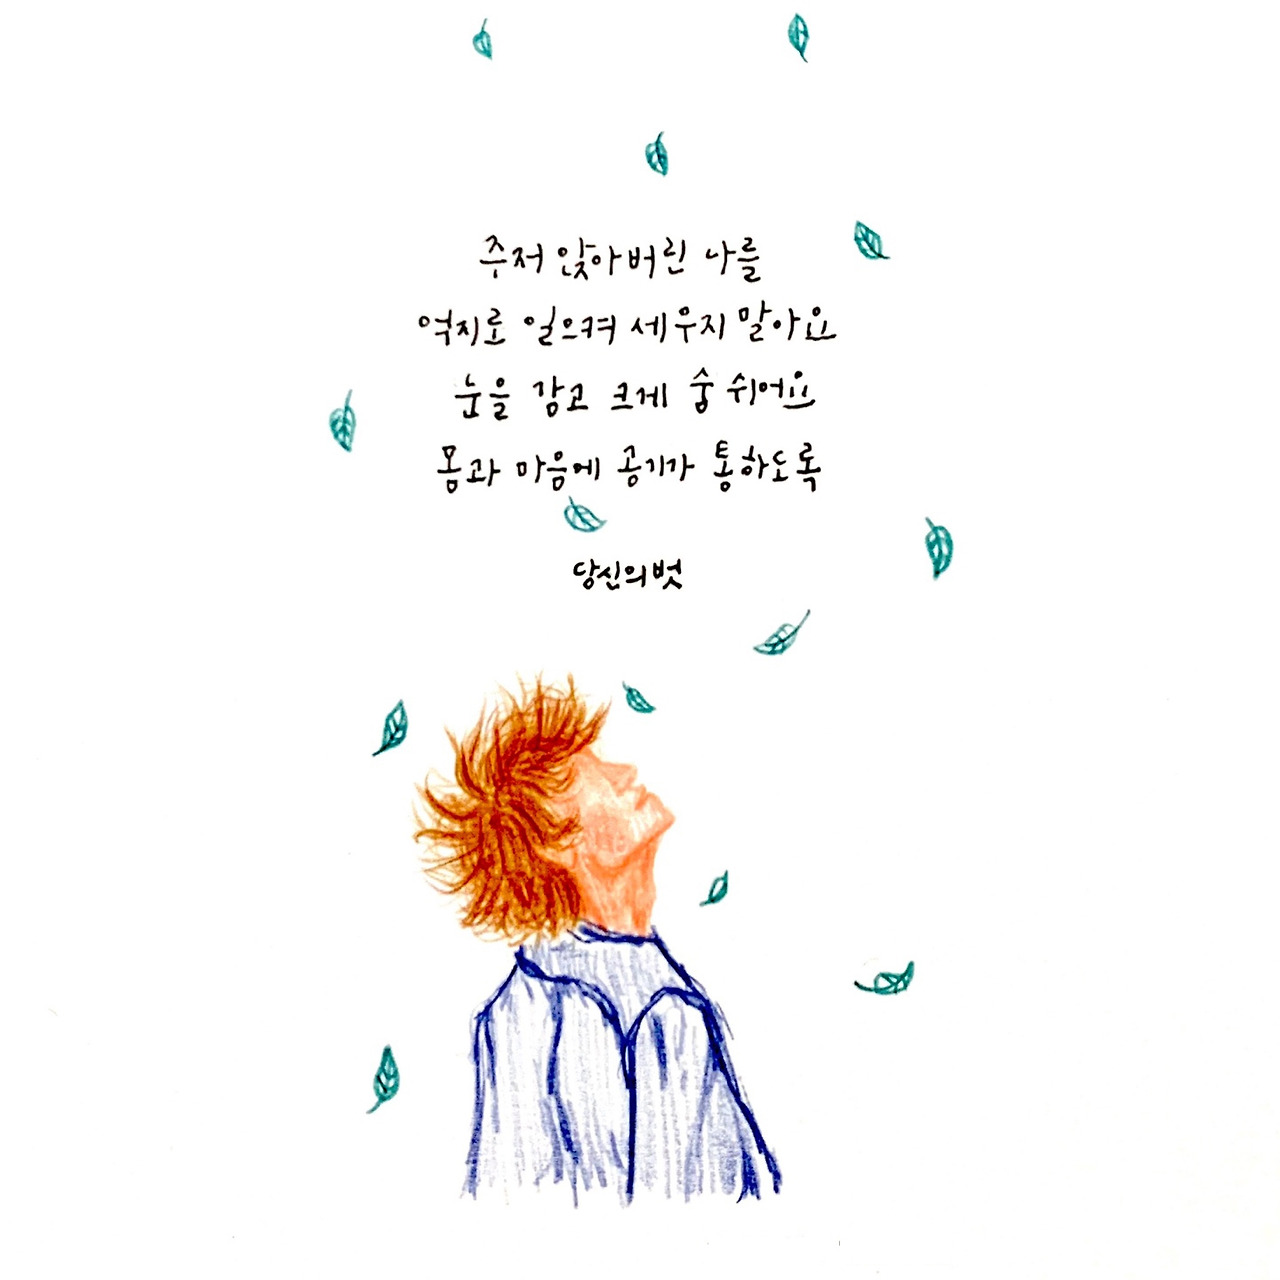 주저 앉아버린 나를
억지로 일으켜 세우지 말아요
눈을 감고 크게 숨 쉬어요
몸과 마음에 공기가 통하도록
당신의 벗